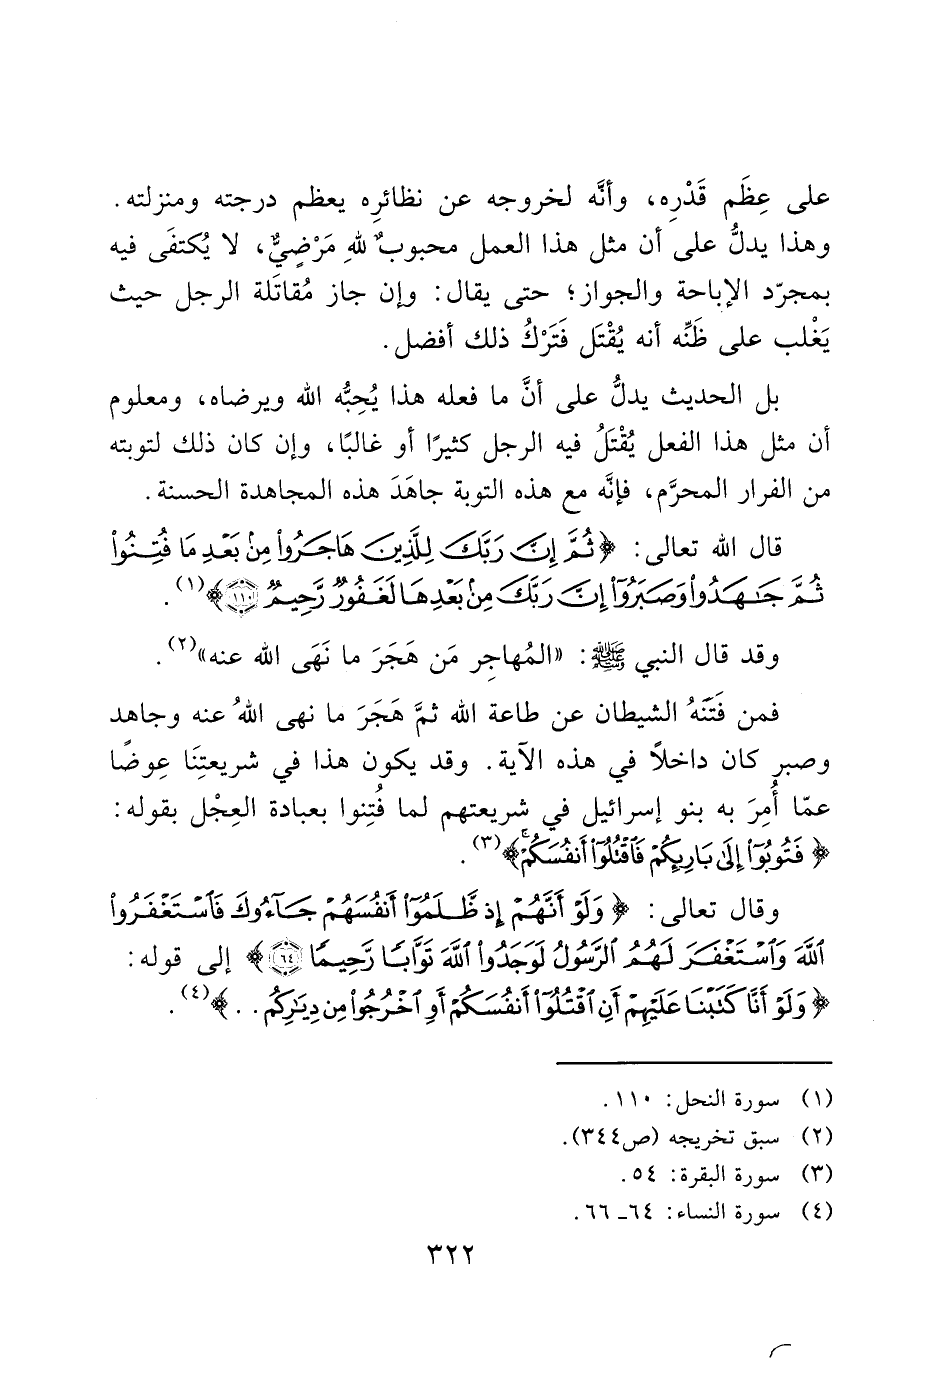 على عِظَم قَدْرِه، وأنَّه لخروجه عن نظائرِه يعظم درجته ومنزلته.
وهذا يدلُّ على أن مثل هذا العمل محبوبٌ للهِ مَرْضِيٌّ، لا يُكتفَى فيه
بمجرّد الإباحة والجواز؛ حتى يقال: وإن جاز مُقاتَلة الرجل حيث
يَغْلب على ظَنِّه أنه يُقْتَل فَتَرْكُ ذلك أفضل.
بل الحديث يدلُّ على أنَّ ما فعله هذا يُحِبُّه الله ويرضاه، ومعلوم
أن مثل هذا الفعل يُقْتَلُ فيه الرجل كثيرًا أو غالبًا، وإن كان ذلك لتوبته
من الفرار المحرَّم، فإنَّه مع هذه التوبة جاهَدَ هذه المجاهدة الحسنة.
قال الله تعالى: ﴿ثُمَّ إِنَّ رَبَّكَ لِلَّذِينَ هَاجَرُواْ مِنۢ بَعْدِ مَا فُتِنُواْ
ثُمَّ جَٰهَدُواْ وَصَبَرُوٓاْ إِنَّ رَبَّكَ مِنۢ بَعْدِهَا لَغَفُورٌ رَّحِيمٌ ١١٠﴾(١).
وقد قال النبي ﷺ: «المُهاجِر مَن هَجَرَ ما نَهَى الله عنه»(٢).
فمن فَتَنَهُ الشيطان عن طاعة الله ثمَّ هَجَرَ ما نهى اللهُ عنه وجاهد
وصبر كان داخلاً في هذه الآية. وقد يكون هذا في شريعتِنَا عِوضًا
عمّا أُمِرَ به بنو إسرائيل في شريعتهم لما فُتِنوا بعبادة العِجْل بقوله:
﴿فَتُوبُوٓاْ إِلَىٰ بَارِئِكُمْ فَٱقْتُلُوٓاْ أَنفُسَكُمْ﴾(٣).
وقال تعالى: ﴿وَلَوْ أَنَّهُمْ إِذ ظَّلَمُوٓاْ أَنفُسَهُمْ جَآءُوكَ فَٱسْتَغْفَرُواْ
ٱللَّهَ وَٱسْتَغْفَرَ لَهُمُ ٱلرَّسُولُ لَوَجَدُواْ ٱللَّهَ تَوَّابًا رَّحِيمًا ٦٤﴾ إلى قوله:
﴿وَلَوْ أَنَّا كَتَبْنَا عَلَيْهِمْ أَنِ ٱقْتُلُوٓاْ أَنفُسَكُمْ أَوِ ٱخْرُجُواْ مِن دِيَٰرِكُم...﴾(٤).
(١) سورة النحل: ١١٠.
(٢) سبق تخريجه (ص٣٤٤).
(٣) سورة البقرة: ٥٤.
(٤) سورة النساء: ٦٤ـ ٦٦.
٣٢٢